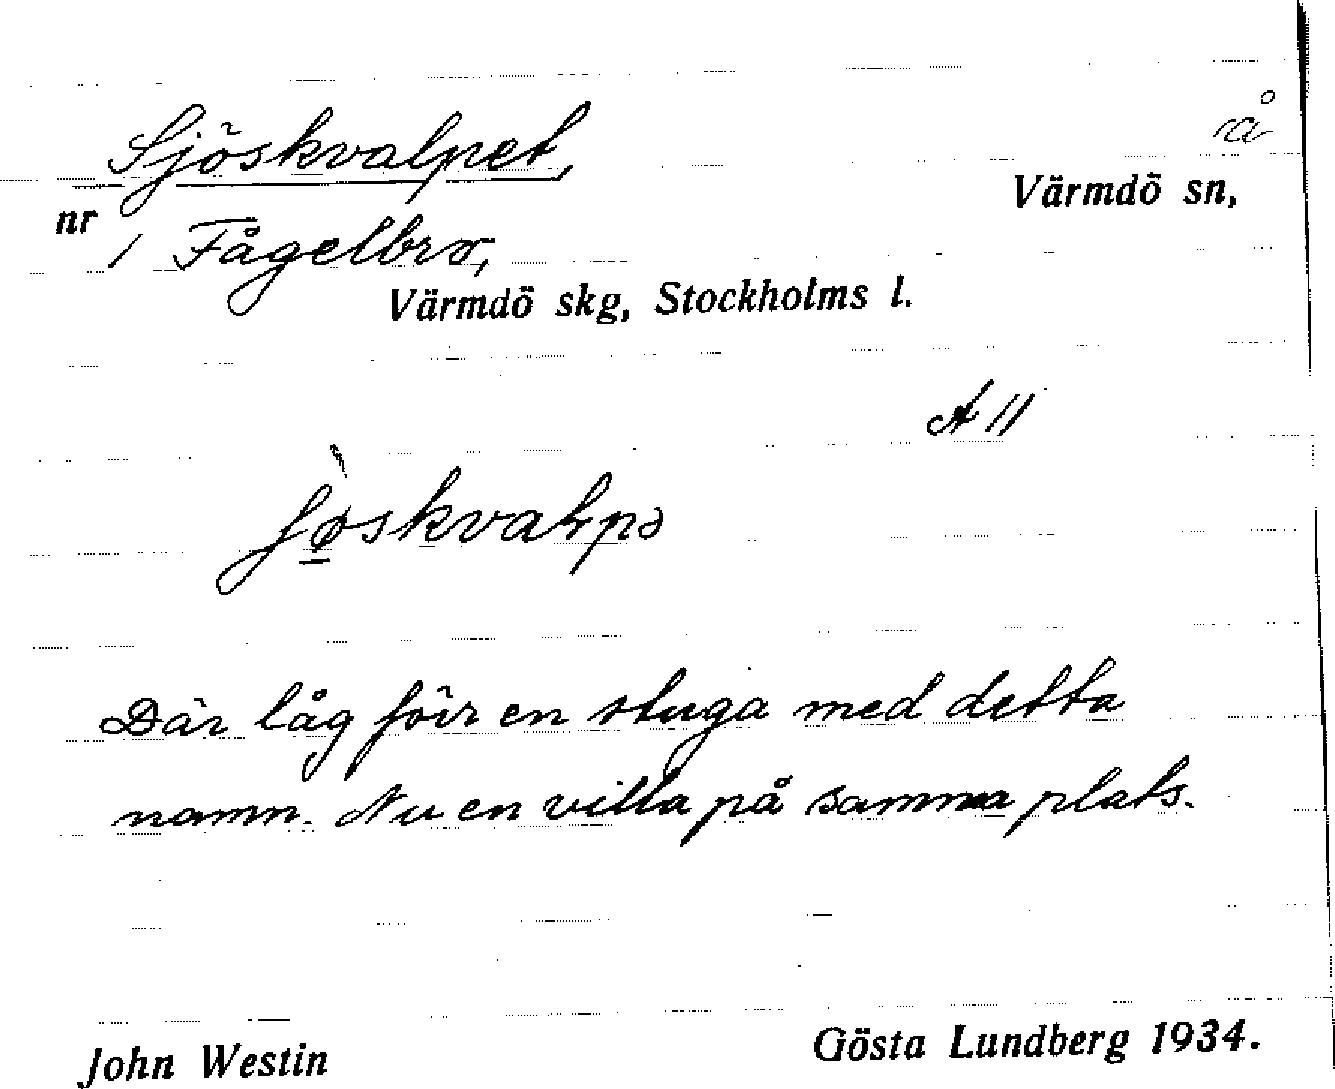 Sjöskvalpet,
å
Värmdö sn,
nr
1 Fågelbro,
Värmdö skg, Stockholms l.
A 11
Där låg förr en stuga med detta
namn. Nu en villa på samma plats.
John Westin
Gösta Lundberg 1934.